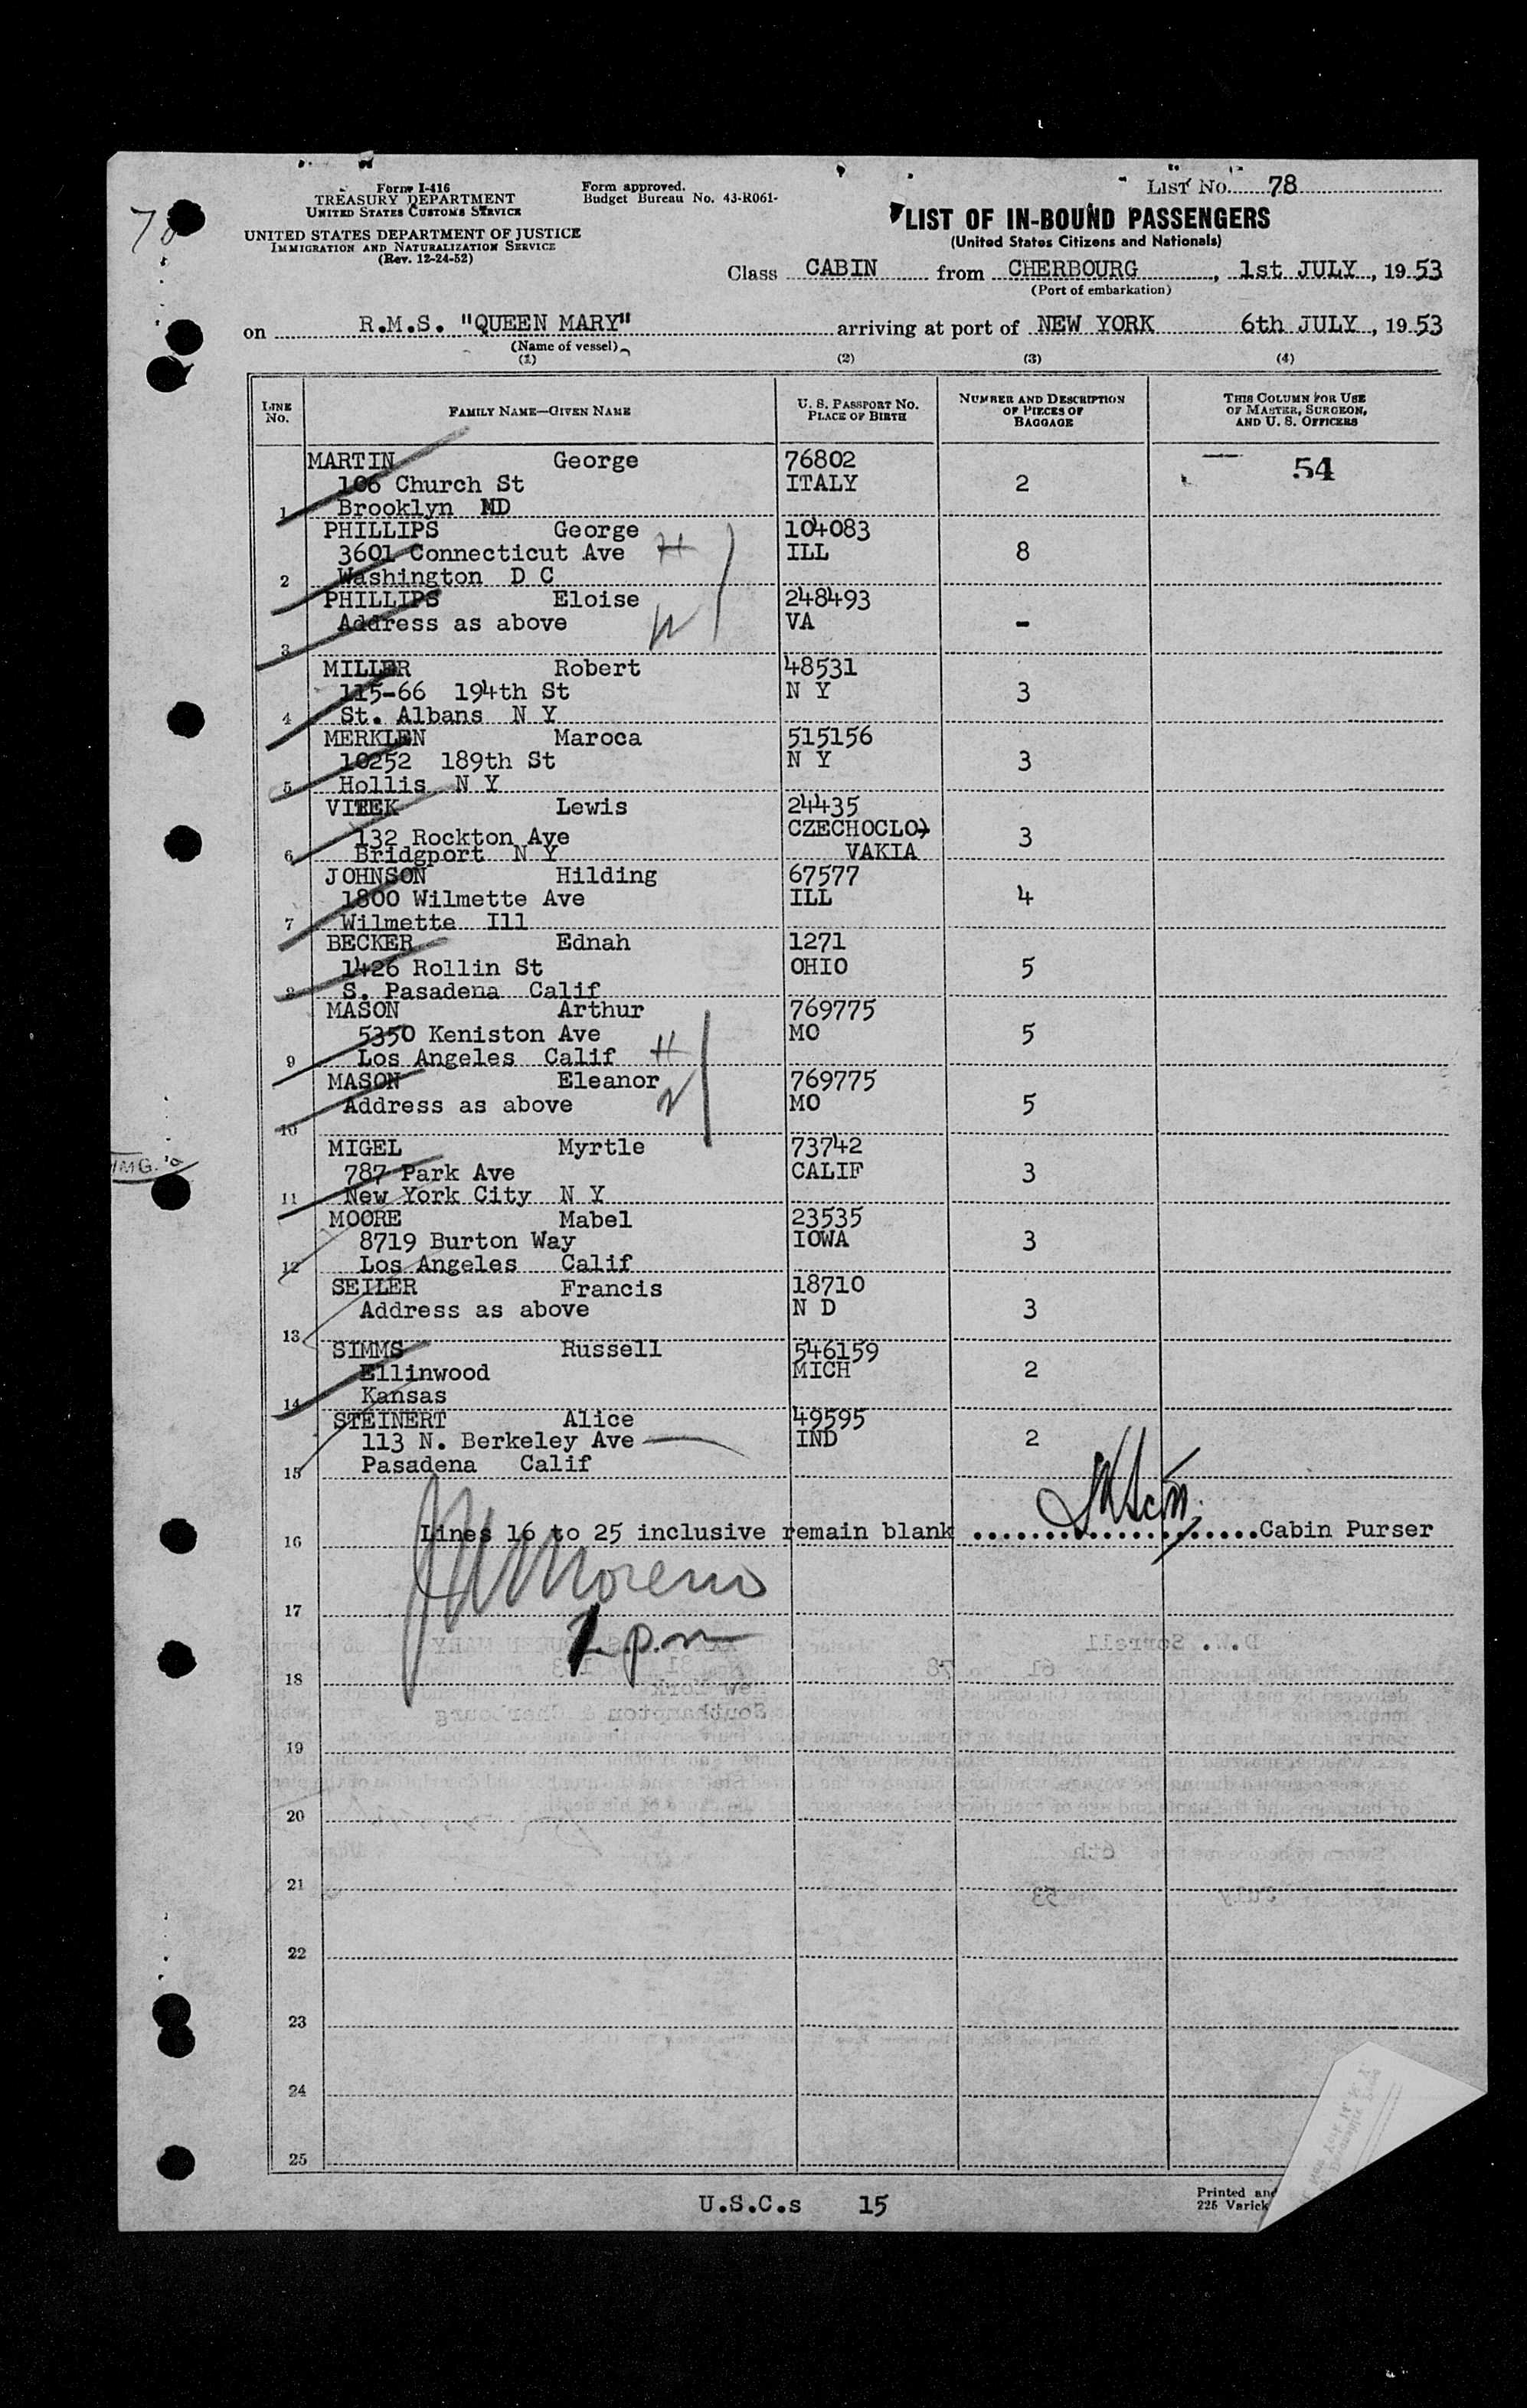 78
Form I-416
TREASURY DEPARTMENT
UNITED STATES CUSTOMS SERVICE
UNITED STATES DEPARTMENT OF JUSTICE
IMMIGRATION AND NATURALIZATION SERVICE
(Rev. 12-24-52)
Form approved.
Budget Bureau No. 43-R061-
LIST NO. 78
LIST OF IN-BOUND PASSENGERS
(United States Citizens and Nationals)
Class CABIN from CHERBOURG, 1st JULY, 1953
(Port of embarkation)
on R.M.S. "QUEEN MARY" arriving at port of NEW YORK 6th JULY, 1953
(Name of vessel)
(1) (2) (3) (4)
LINE NO. FAMILY NAME—GIVEN NAME U. S. PASSPORT NO. PLACE OF BIRTH NUMBER AND DESCRIPTION OF PIECES OF BAGGAGE THIS COLUMN FOR USE OF MASTER, SURGEON, AND U. S. OFFICERS
MARTIN George 76802 54
106 Church St ITALY 2
1 Brooklyn MD
PHILLIPS George 104083
3601 Connecticut Ave H ILL 8
2 Washington D C
PHILLIPS Eloise 248493
Address as above W VA -
3
MILLER Robert 48531
115-66 194th St N Y 3
4 St. Albans N Y
MERKLEN Maroca 515156
10252 189th St N Y 3
5 Hollis N Y
VITEK Lewis 24435
132 Rockton Ave CZECHOCLO) 3
6 Bridgport N Y VAKIA
JOHNSON Hilding 67577
1800 Wilmette Ave ILL 4
7 Wilmette Ill
BECKER Ednah 1271
1426 Rollin St OHIO 5
8 S. Pasadena Calif
MASON Arthur 769775
5350 Keniston Ave MO 5
9 Los Angeles Calif H
MASON Eleanor 769775
Address as above W MO 5
10
MIGEL Myrtle 73742
787 Park Ave CALIF 3
11 New York City N Y
MOORE Mabel 23535
8719 Burton Way IOWA 3
12 Los Angeles Calif
SEILER Francis 18710
Address as above N D 3
13
SIMMS Russell 546159
Ellinwood MICH 2
14 Kansas
STEINERT Alice 49595
113 N. Berkeley Ave IND 2
15 Pasadena Calif
16 Lines 16 to 25 inclusive remain blank ....................Cabin Purser
Moreno
17
18
19
20
21
22
23
24
25
U.S.C.s 15
Printed and
225 Varick